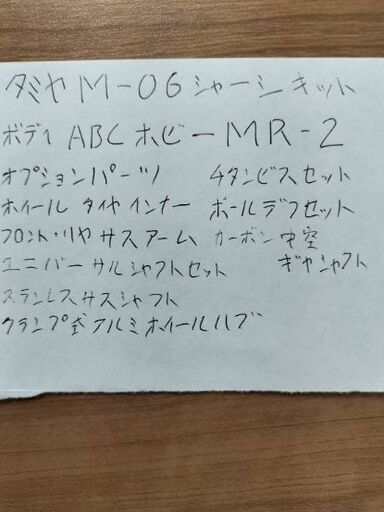 タミヤ M-06 シャーシキット
ボディ ABCホビー MR-2
オプションパーツ
ホイール タイヤ インナー
フロント・リヤ サスアーム
ユニバーサルシャフトセット
ステンレスサスシャフト
クランプ式アルミホイールハブ
チタンビスセット
ボールデフセット
カーボン中空
ギヤシャフト